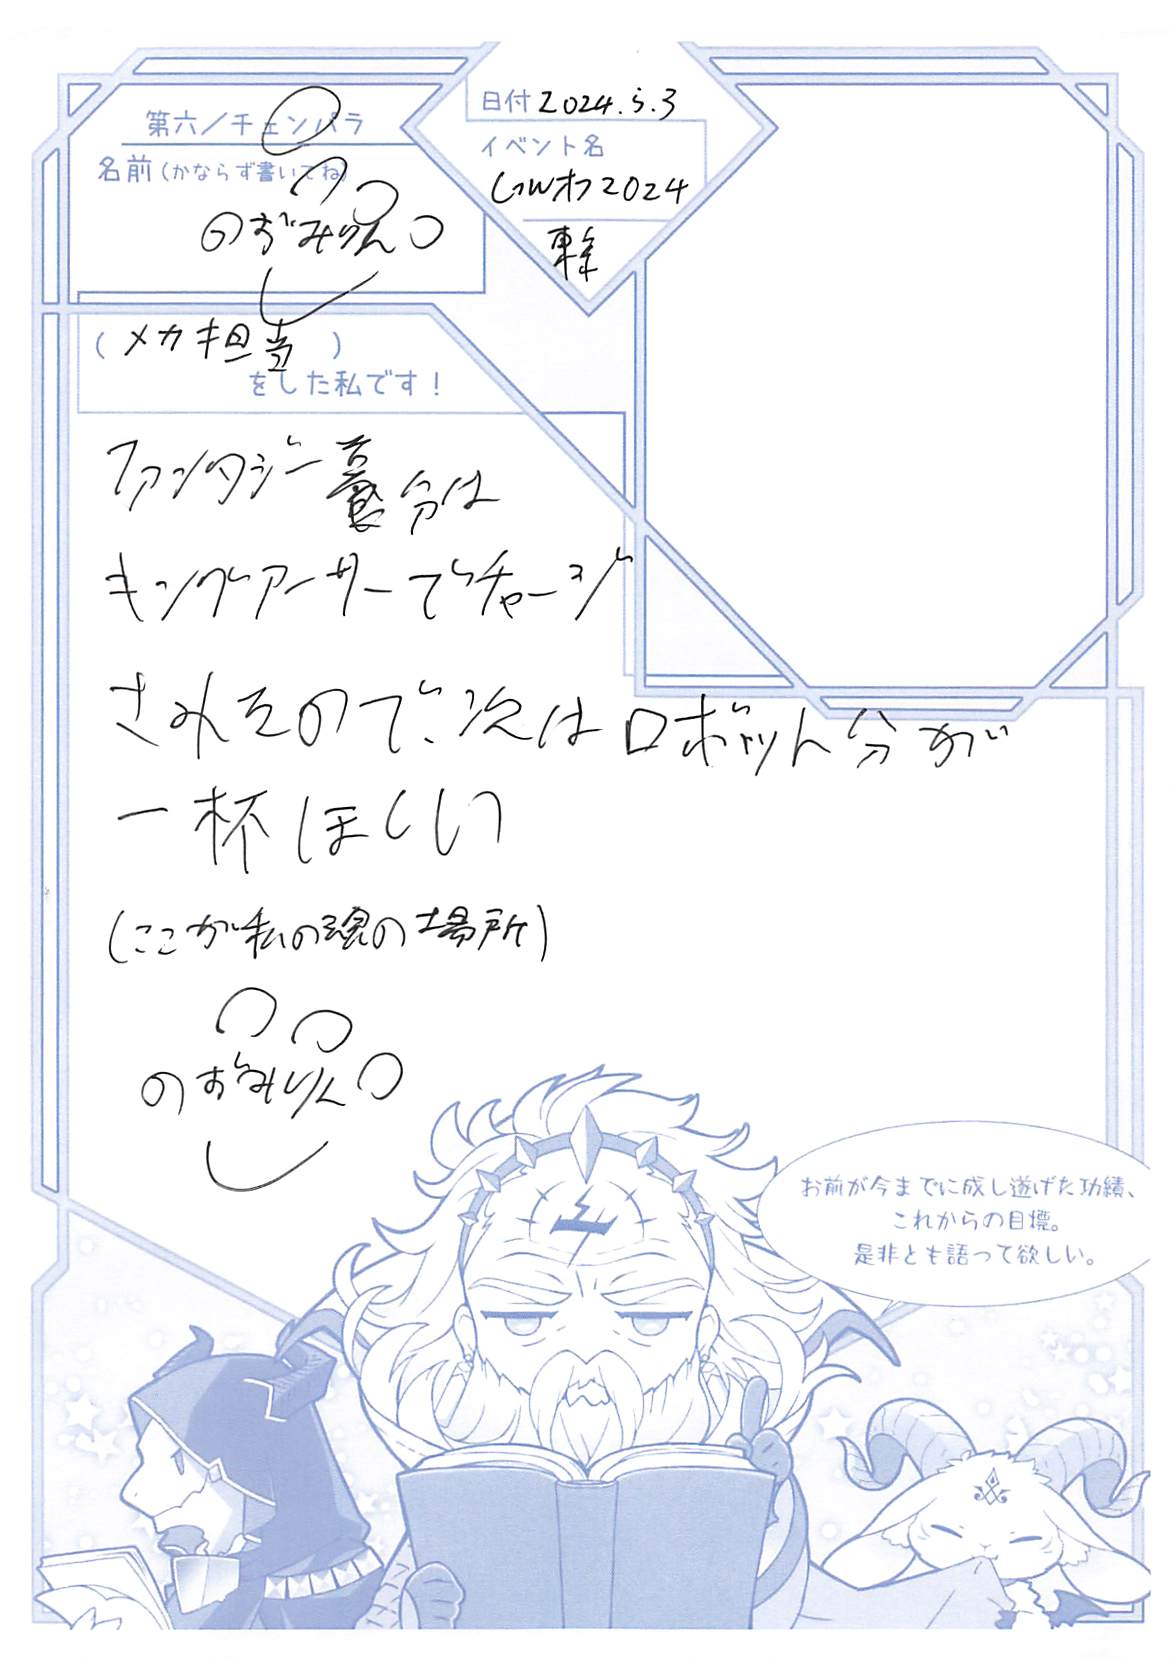 第六ノチェンパラ
名前(かならず書いてね)
のずみりん
日付 2024.5.3
イベント名
GWオフ2024
東
(メカ担当)
をした私です!
ファンタジー養分は
キングアーサーでチャージ
されそので、次はロボット分が
一杯ほしい
(ここが私の魂の場所)
のずみりん
お前が今までに成し遂げた功績、
これからの目標。
是非とも語って欲しい。